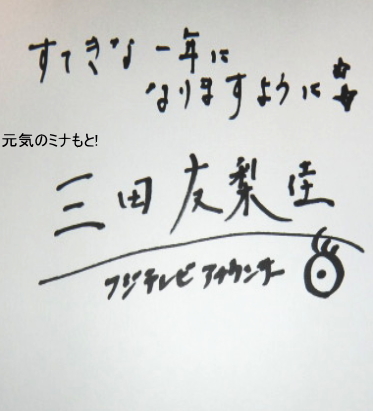 すてきな一年に
なりますように
元気のミナもと!
三田友梨佳
フジテレビアナウンサー